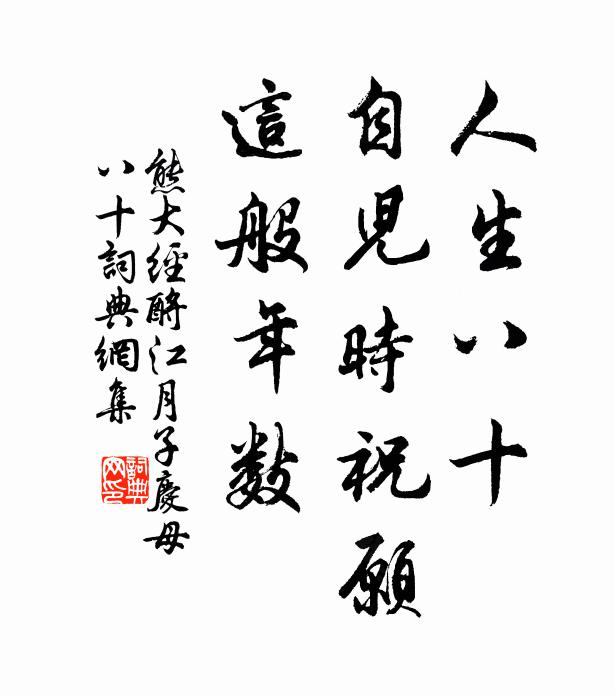 人生八十
自児時祝願
這般年数
熊大經酹江月子慶母
八十詞典網集
詞典
网印